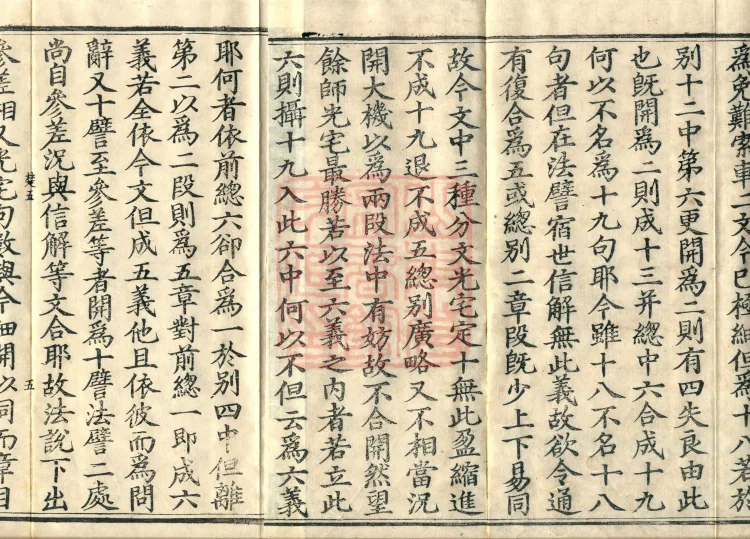 為免難索車二文今已極細但為十八若於
別十二中第六更開為二則有四失良由此
也旣開為二則成十三并總中六合成十九
何以不名為十九句耶今雖十八不名十八
句者但在法譬宿世信解無此義故欲令通
有復合為五或總別二章段旣少上下易同
故今文中三種分文光宅定十無此盈縮進
不成十九退不成五總別廣略又不相當況
開大機以為兩段法中有妨故不合開然望
餘師光宅最勝若以至六義之內者若立此
六則攝十九入此六中何以不但云為六義
耶何者依前總六卻合為一於別四中但離
第二以為二段則為五章對前總一即成六
義若全依今文但成五義他且依彼而為問
辭又十譬至參差等者開為十譬法譬二處
尚自參差況與信解等文合耶故法說下出
五
參差相又光宅句數與今細開以同而章目